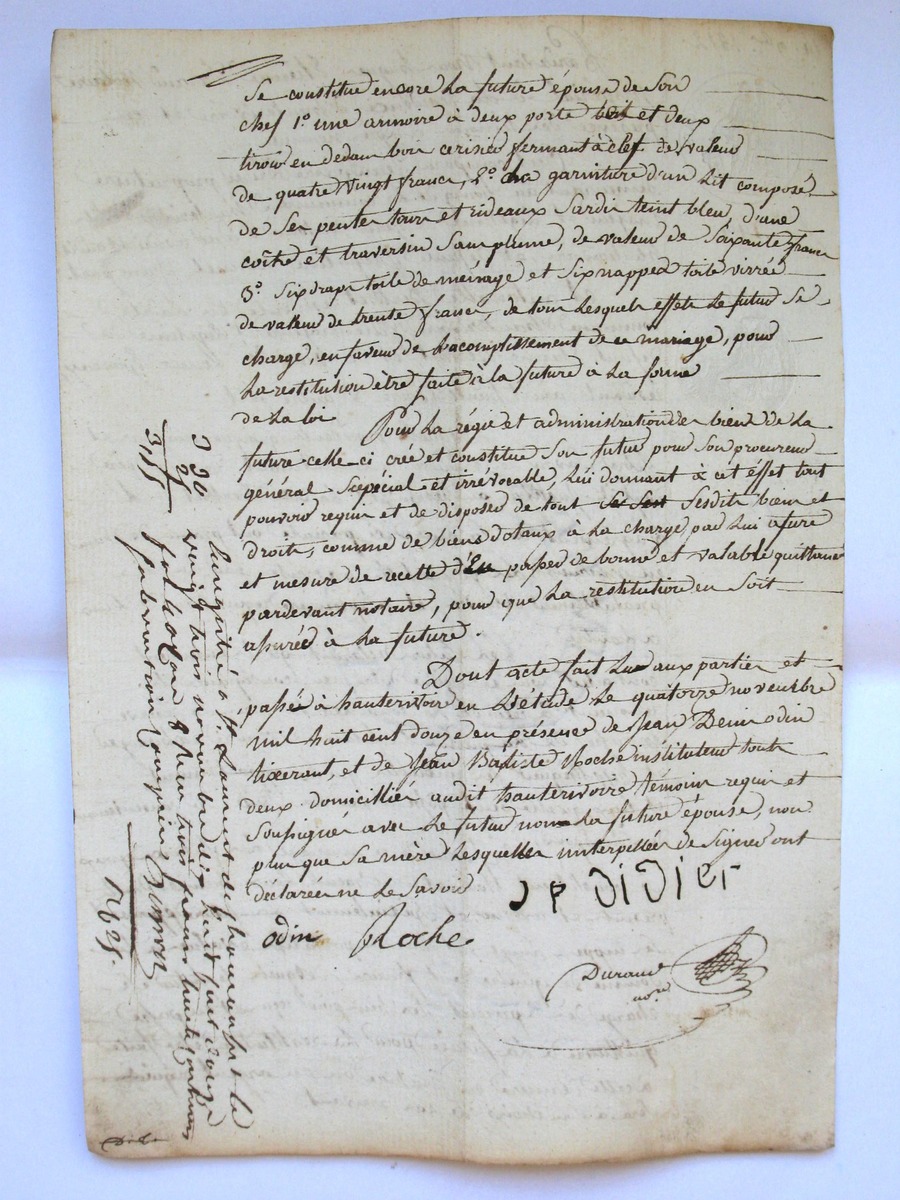 Se constitue encore la future épouse de Son
chef 1° une armoire à deux porte et deux
tiroir en dedam bois cerisier fermant à clef de valeur
de quatre vingt franc, 2° la garniture d'un Lit composé
de Ses pente tour et rideaux Sardis teint bleu, d'une
coitre et traversin Sam plume, de valeur de Soixante franc
3° Six drap toile de ménage et Six nappes toile virrée
de valeur de trente franc, de tous Lesquels effets Le futur Se
charge, en faveur de L'acomplissement de ce mariage, pour
La restitution être faite à la future à La forme
de La loi
Pour La régie et administration des biens de La
future celle ci crée et constitue Son futur pour Son procureur
général Spécial et irrévocable, Lui donnant à cet effet tout
pouvoir requis et de disposer de tout Sesdits biens et
droits, comme de biens dotaux à La charge par Lui afure
et mesure de recette d'En passer de bonne et valable quittance
pardevant notaire, pour que La restitution en Soit
assurée à La future.
Dont acte fait Lu aux parties et
passé à hauterivoire en L'étude Le quatorze novembre
mil huit cent douze en présence de Jean Denis odin
tixerant, et de Jean Batiste Roche instituteur tout
deux domicilliés audit hauterivoire témoins requis et
Soussignés avec Le futur non La future épouse, non
plus que Sa mère Lesquelles interpellées de Signer ont
déclarée ne Le Savoir
JP DiDier
odin Roche
Durand
no.re
Enregistré à St Laurent de Chamousset le
vingt trois novembre dix huit cent douze
fol. Reçu trois francs trente centimes
subvention comprise
3 30